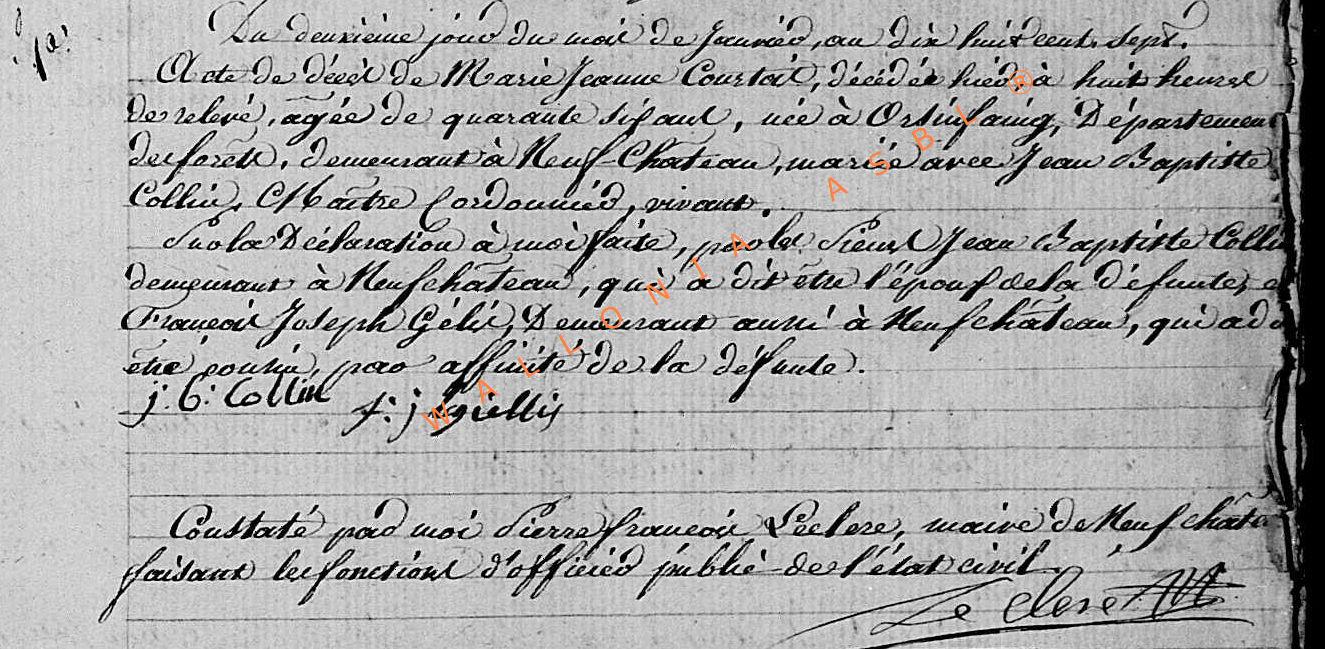 1er
Du deuxième jour du mois de Janvier, an dix huit cent sept.
Acte de décès de Marie Jeanne Courtois, décédée hier, à huit heures
de relevé, agée de quarante six ans, née à Orsinfaing, Département
des forêts, demeurant à Neuf-Château, mariée avec Jean Baptiste
Collin, Maître Cordonnier, vivant.
Sur la Déclaration à moi faite, par les Sieurs Jean Baptiste Collin
demeurant à Neufchâteau, qui a dit être l'époux de la défunte, e
François Joseph Gélis, Demeurant aussi à Neufchâteau, qui a d
être cousin, par affinité de la défunte.
j: b: Collin f: j: giellis
Constaté par moi Pierre françois Leclere, maire de Neufchâte
faisant les fonctions d'officier public de l'état civil.
Le Clere
WALLONIA ASBL ®